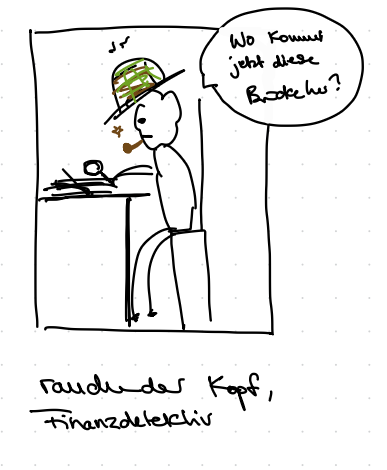 Wo kommt
jetzt diese
her?
rauchender Kopf,
Finanzdetektiv